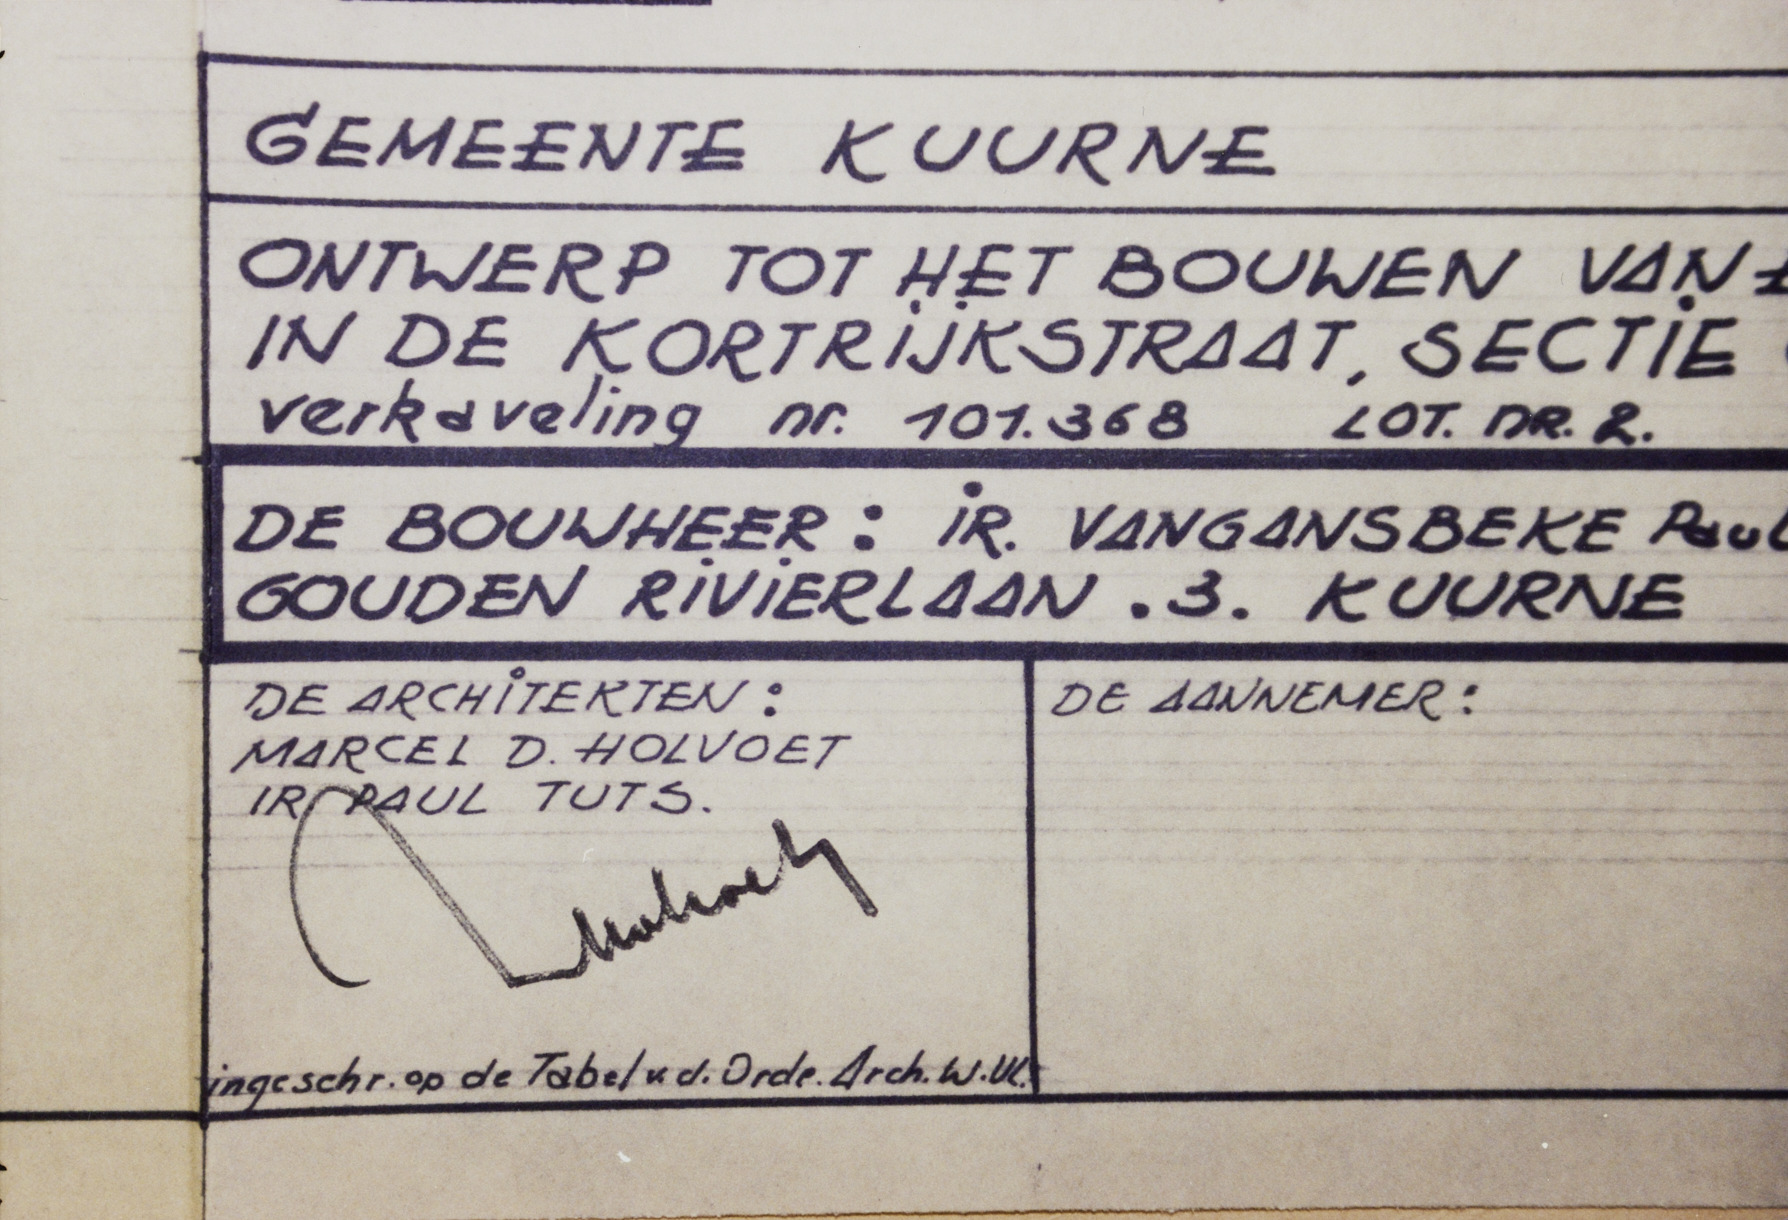 GEMEENTE KUURNE
ONTWERP TOT HET BOUWEN VAN
IN DE KORTRIJKSTRAAT, SECTIE
verkaveling nr. 101.368 LOT. NR. 2.
DE BOUWHEER: IR. VANGANSBEKE Paul
GOUDEN RIVIERLAAN .3. KUURNE
DE ARCHITEKTEN:
MARCEL D. HOLVOET
IR PAUL TUTS.
DE AANNEMER:
ingeschr. op de Tabel v.d. Orde. Arch. W.Vl.